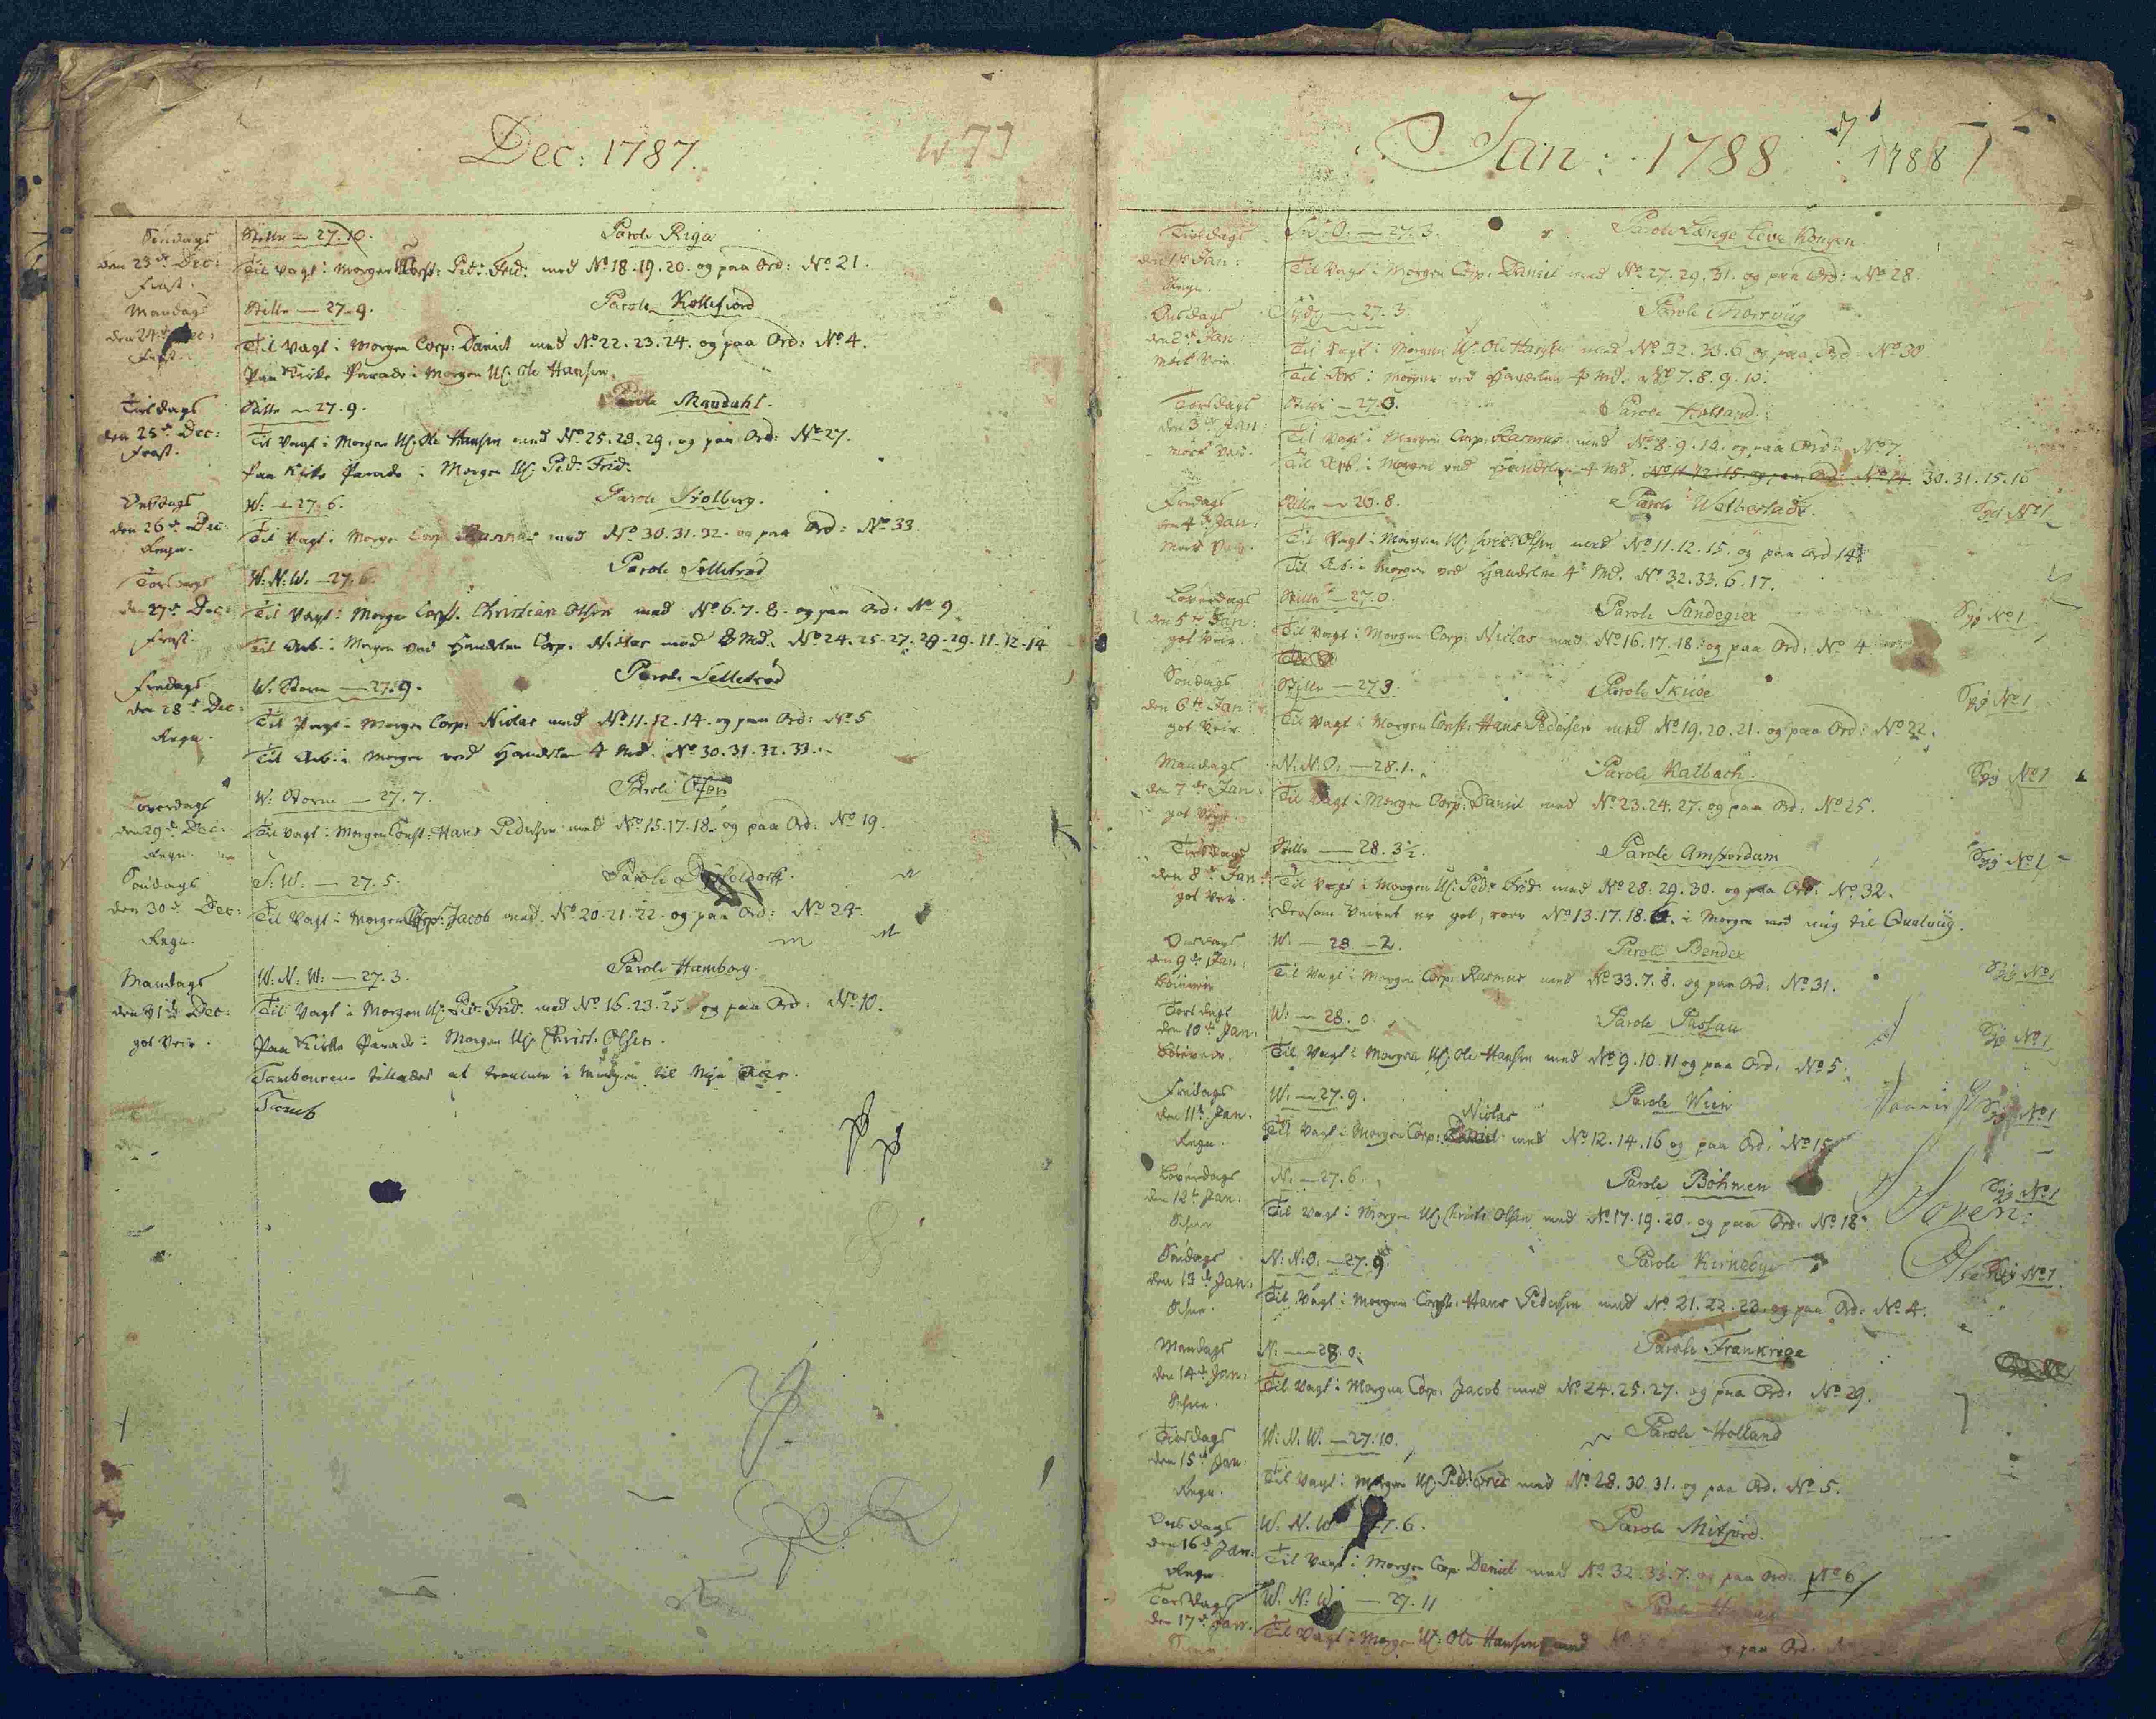 Dec: 1787.
Söndags Stille — 27.10. Parole Riga
den 23de Dec: Til Vagt i Morgen Corp: Ped: Frid: med No 18.19.20. og paa Ord: No 21.
Frost.
Mandags Stille — 27.9. Parole Kollefiord
den 24de Dec: Til Vagt i Morgen Corp: Daniel med No 22.23.24. og paa Ord: No 4.
Frost. Paa Kirke Parade i Morgen Us. Ole Hansen.
Tirsdags Stille — 27.9. Parole Mandahl.
den 25de Dec: Til Vagt i Morgen Us. Ole Hansen med No 25.28.29. og paa Ord: No 27.
Frost. Paa Kirke Parade i Morgen Us. Ped: Frid:
Onsdags W: — 27.6. Parole Stolberg.
den 26de Dec: Til Vagt i Morgen Corp: Rasmus med No 30.31.32. og paa Ord: No 33.
Regn.
Torsdags W:N:W. — 27.6. Parole Selletrød
den 27de Dec: Til Vagt i Morgen Const. Christian Olsen med No 6.7.8. og paa Ord: No 9
Frost. Til Arb. i Morgen ved Handelen Corp. Niclas med 8 Md. No 24.25.27.28.29.11.12.14
Fredags W. Storm — 27.9. Parole Selletrød
den 28de Dec: Til Vagt i Morgen Corp: Niclas med No 11.12.14. og paa Ord: No 5
Regn. Til Arb. i Morgen ved Handelen 4 Md. No 30.31.32.33.
Löverdags W: Storm — 27.7. Parole
den 29de Dec: Til Vagt i Morgen Const: Hans Pedersen med No 15.17.18. og paa Ord: No 19.
Regn.
Söndags S:W: — 27.5. Parole Dysseldorff.
den 30te Dec: Til Vagt i Morgen Corp: Jacob med No 20.21.22. og paa Ord: No 24.
Regn.
Mandags W:N:W: — 27.3. Parole Hamborg.
den 31te Dec: Til Vagt i Morgen Us. Ped: Frid: med No 16.23.25 og paa Ord: No 10.
got Veir. Paa Kirke Parade i Morgen Us. Christ: Olsen.
Tambouren tillades at tromme i Morgen til Nye Aar.
Tamb
Jan: 1788. 1788
Tirsdags S:O: — 27.3. Parole Længe Leve Kongen.
den 1te Jan: Til Vagt i Morgen Corp: Daniel med No 27.29.31. og paa Ord: No 28.
Regn.
Onsdags — 27.3. Parole Thorsviig
den 2de Jan: Til Vagt i Morgen Us. Ole Hansen med No 32.33.6 og paa Ord: No 30
Mörk Veir Til Arb: i Morgen ved Handelen 4 Md. No 7.8.9.10.
Torsdags Stille — 27.0. Parole Holland.
den 3de Jan: Til Vagt i Morgen Corp: Rasmus med No 8.9.10. og paa Ord: No 7.
Mörk Veir. Til Arb: i Morgen ved Handelen 4 Md. No 11.12.15. og paa Ord: No 14. 30.31.15.16
Fredags Stille — 26.8. Parole Halberstadt. Syg No 1
den 4de Jan: Til Vagt i Morgen Us. Christ: Olsen med No 11.12.15. og paa Ord 14
Mörk Veir. Til Arb. i Morgen ved Handelen 4 Md. No 32.33.6.17.
Löverdags Stille — 27.0. Parole Sandegier Syg No 1
den 5te Jan: Til Vagt i Morgen Corp: Niclas med No 16.17.18. og paa Ord: No 4
got Veir.
Söndags Stille — 27.3. Parole Skuøe Syg No 1
den 6te Jan: Til Vagt i Morgen Const: Hans Pedersen med No 19.20.21. og paa Ord: No 22.
got Veir
Mandags N:N:O: — 28.1. Parole Kalbach. Syg No 1
den 7de Jan: Til Vagt i Morgen Corp: Daniel med No 23.24.27. og paa Ord: No 25.
got Veir
Tirsdags Stille — 28.3½. Parole Amsterdam Syg No 1
den 8de Jan: Til Vagt i Morgen Us. Ped: Frid: med No 28.29.30. og paa Ord: No 32.
got Veir. Dersom Veiret er got, roer No 13.17.18.6. i Morgen med mig til Qualviig.
Onsdags W. — 28 — 2. Parole Bender Syg No 1
den 9de Jan: Til Vagt i Morgen Corp: Rasmus med No 33.7.8. og paa Ord: No 31.
Torsdags W: — 28.0 Parole Passau Syg No 1
den 10de Jan: Til Vagt i Morgen Us. Ole Hansen med No 9.10.11 og paa Ord: No 5.
Fredags W. — 27.9. Parole Wien Syg No 1
Niclas
den 11te Jan. Til Vagt i Morgen Corp: Daniel med No 12.14.16 og paa Ord: No 15
Regn.
Löverdags N. — 27.6. Parole Böhmen Syg No 1
den 12te Jan. Til Vagt i Morgen Us. Christ: Olsen med No 17.19.20. og paa Ord: No 18.
Schnee Joven:
Söndags N:N:O: — 27.9. Parole Kirkebye Syg No 1
den 13de Jan: Til Vagt i Morgen Const: Hans Pedersen med No 21.22.23. og paa Ord: No 4.
Schnee.
Mandags N: — 28.0. Parole Frankrige
den 14de Jan: Til Vagt i Morgen Corp: Jacob med No 24.25.27. og paa Ord: No 29.
Schnee.
Tirsdags W:N.W. — 27.10. Parole Holland
den 15de Jan. Til Vagt i Morgen Us. Ped: Frid med No 28.30.31. og paa Ord. No 5.
Regn.
Onsdags W.N.W 27.6. Parole Mitfiord.
den 16de Jan. Til Vagt i Morgen Corp Daniel med No 32.33.7. og paa Ord. No 6
Regn.
Torsdags W.N.W. — 27.11 Parole
den 17de Jan. Til Vagt i Morgen Us: Ole Hansen med og paa Ord.